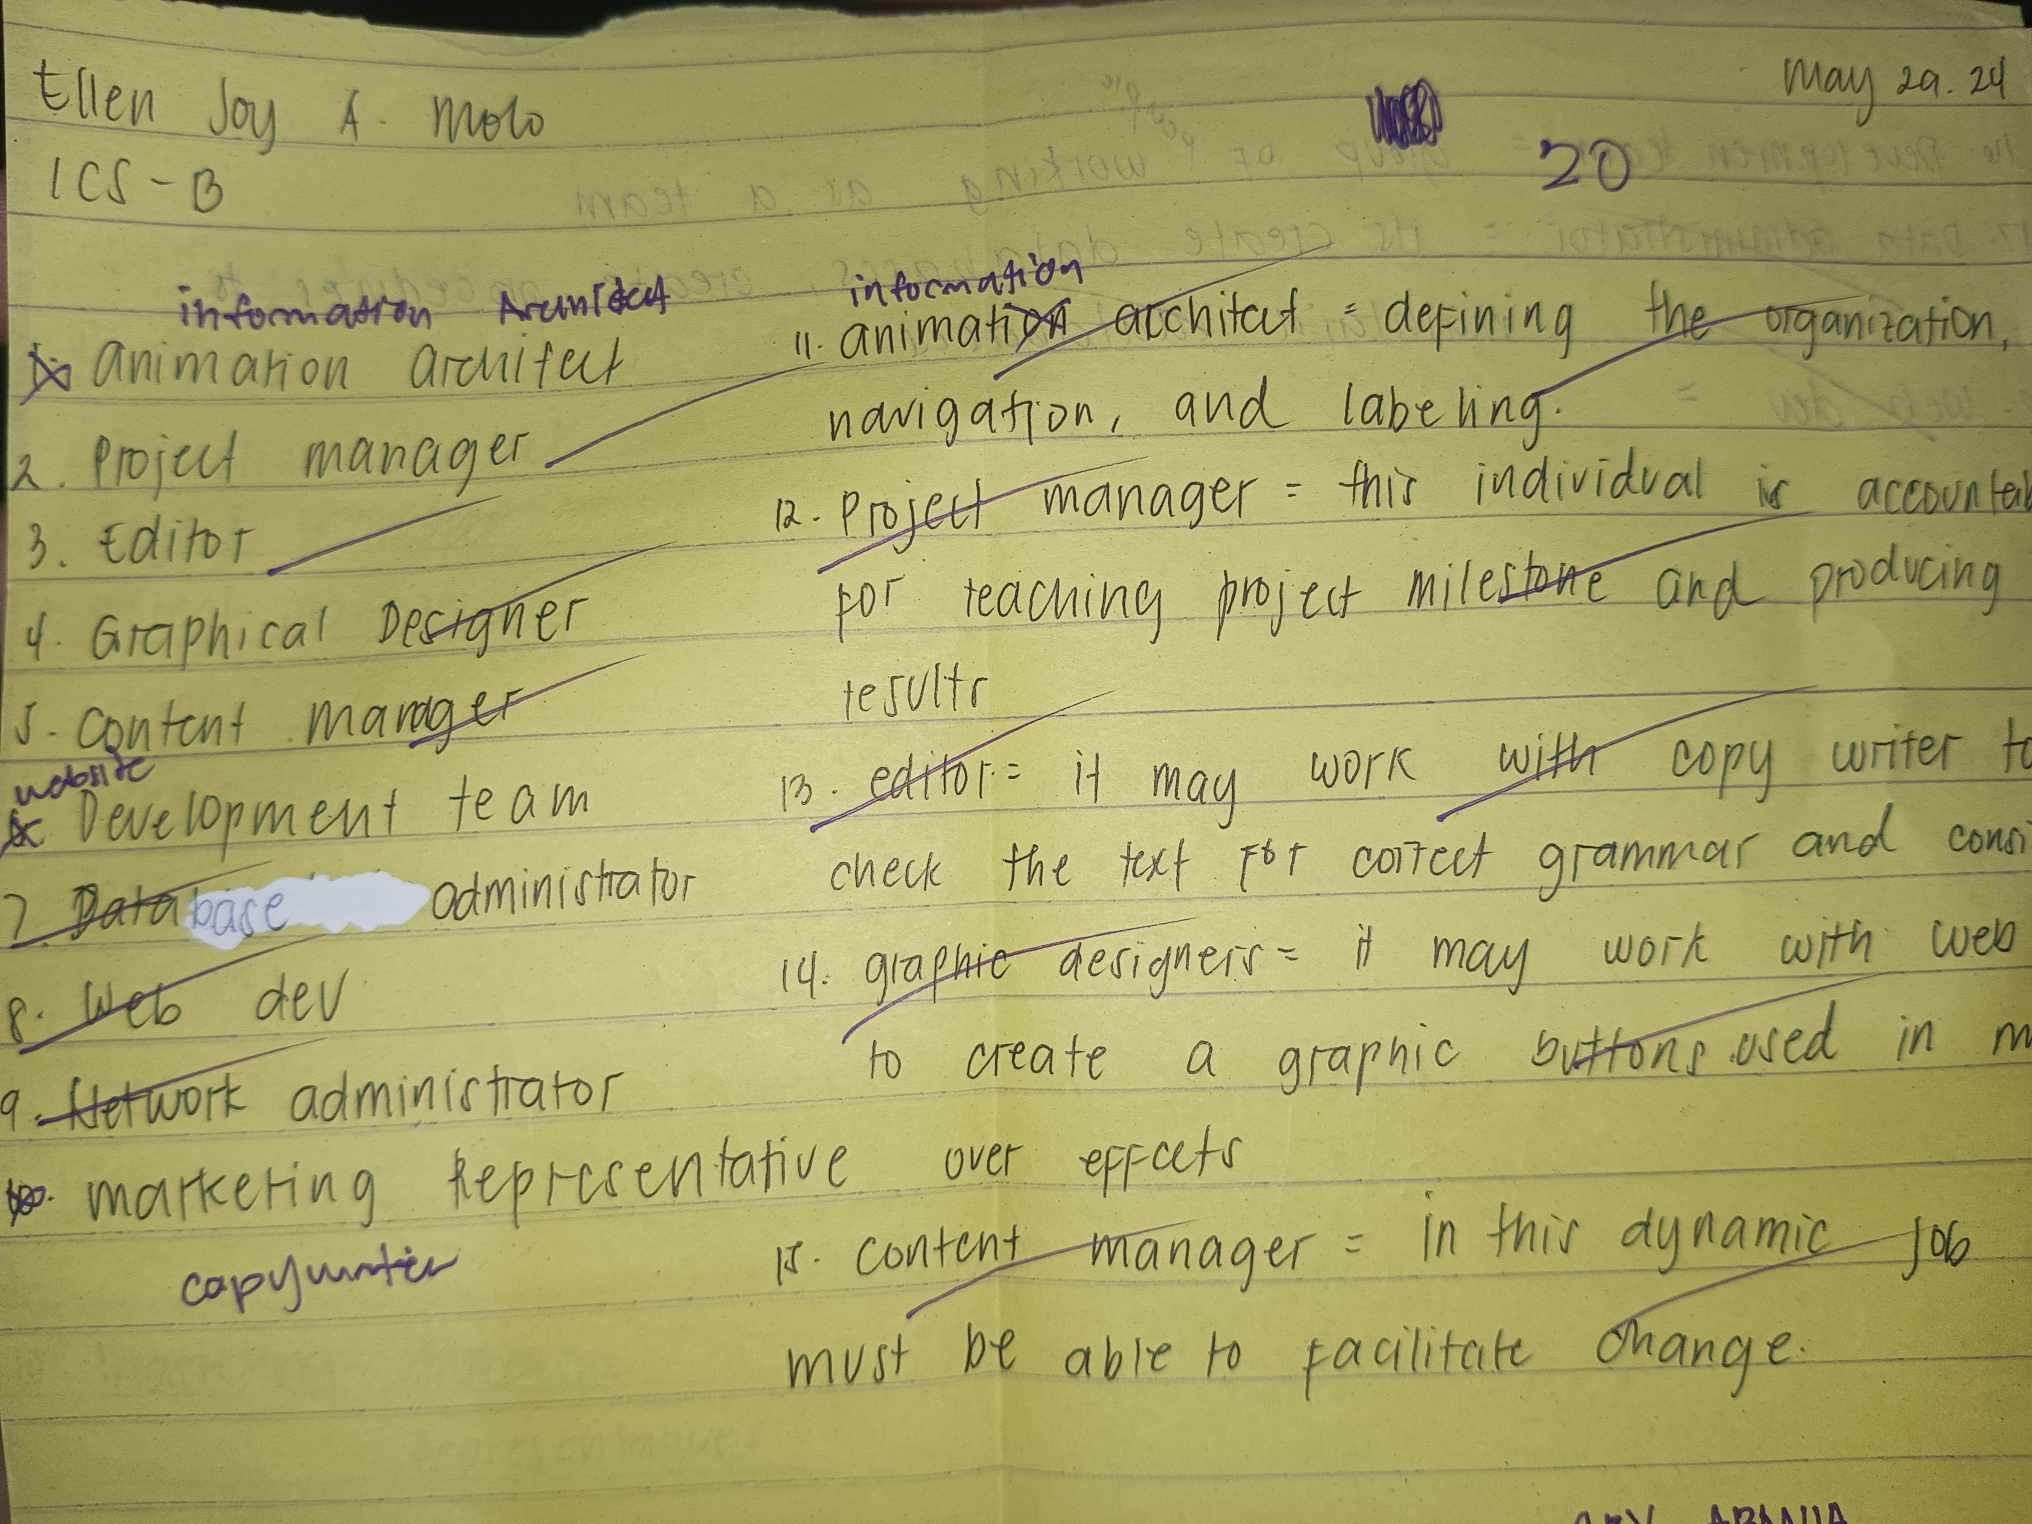 Ellen Joy A. Molo
May 29. 24
1CS-B
20
information Architect
1. animation architect
2. Project manager
3. Editor
4. Graphical Designer
5. Content manager
website
6. Development team
7. Database administrator
8. Web dev
9. Network administrator
10. marketing Representative
copywriter
information
11. animation architect = defining the organization,
navigation, and labeling.
12. Project manager = this individual is accountab
for reaching project milestone and producing
results
13. editor = it may work with copy writer to
check the text for correct grammar and consi
14. graphic designers = it may work with web
to create a graphic buttons used in m
over effects
15. content manager = in this dynamic job
must be able to facilitate change.